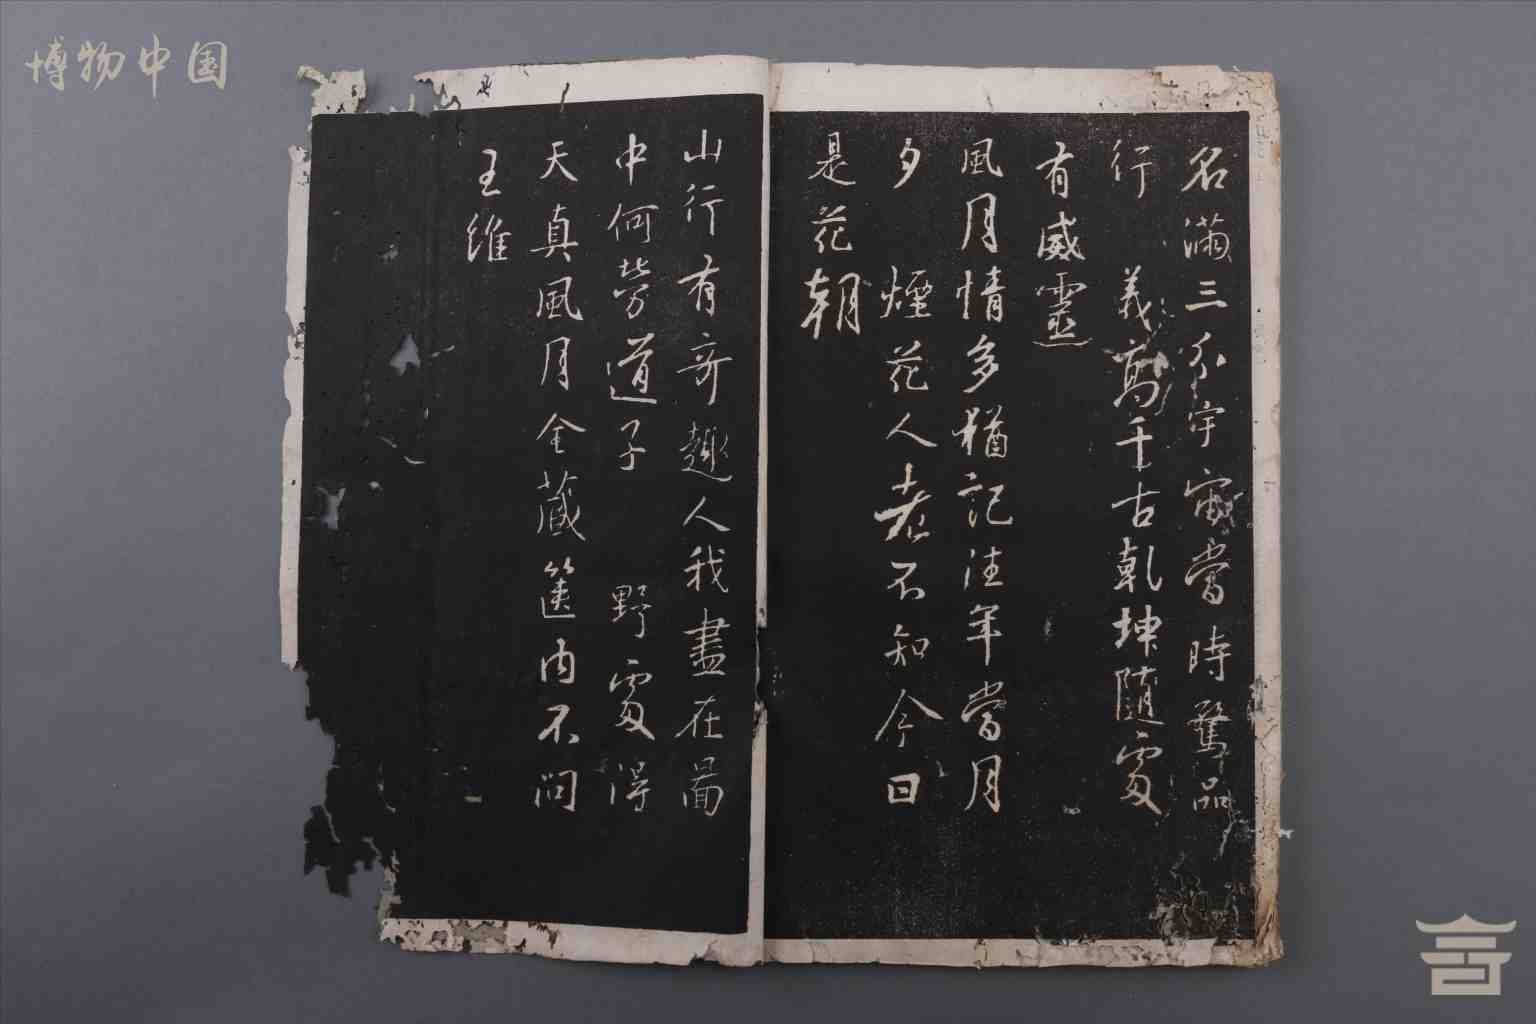 博物中国
名滿三分宇宙當時驚品
行義高千古乾坤隨處
有威靈
風月情多猶記往年當月
夕煙花人老不知今日
是花朝
山行有奇趣人我盡在圖
中何勞道子野處得
天真風月全藏篋內不問
王維